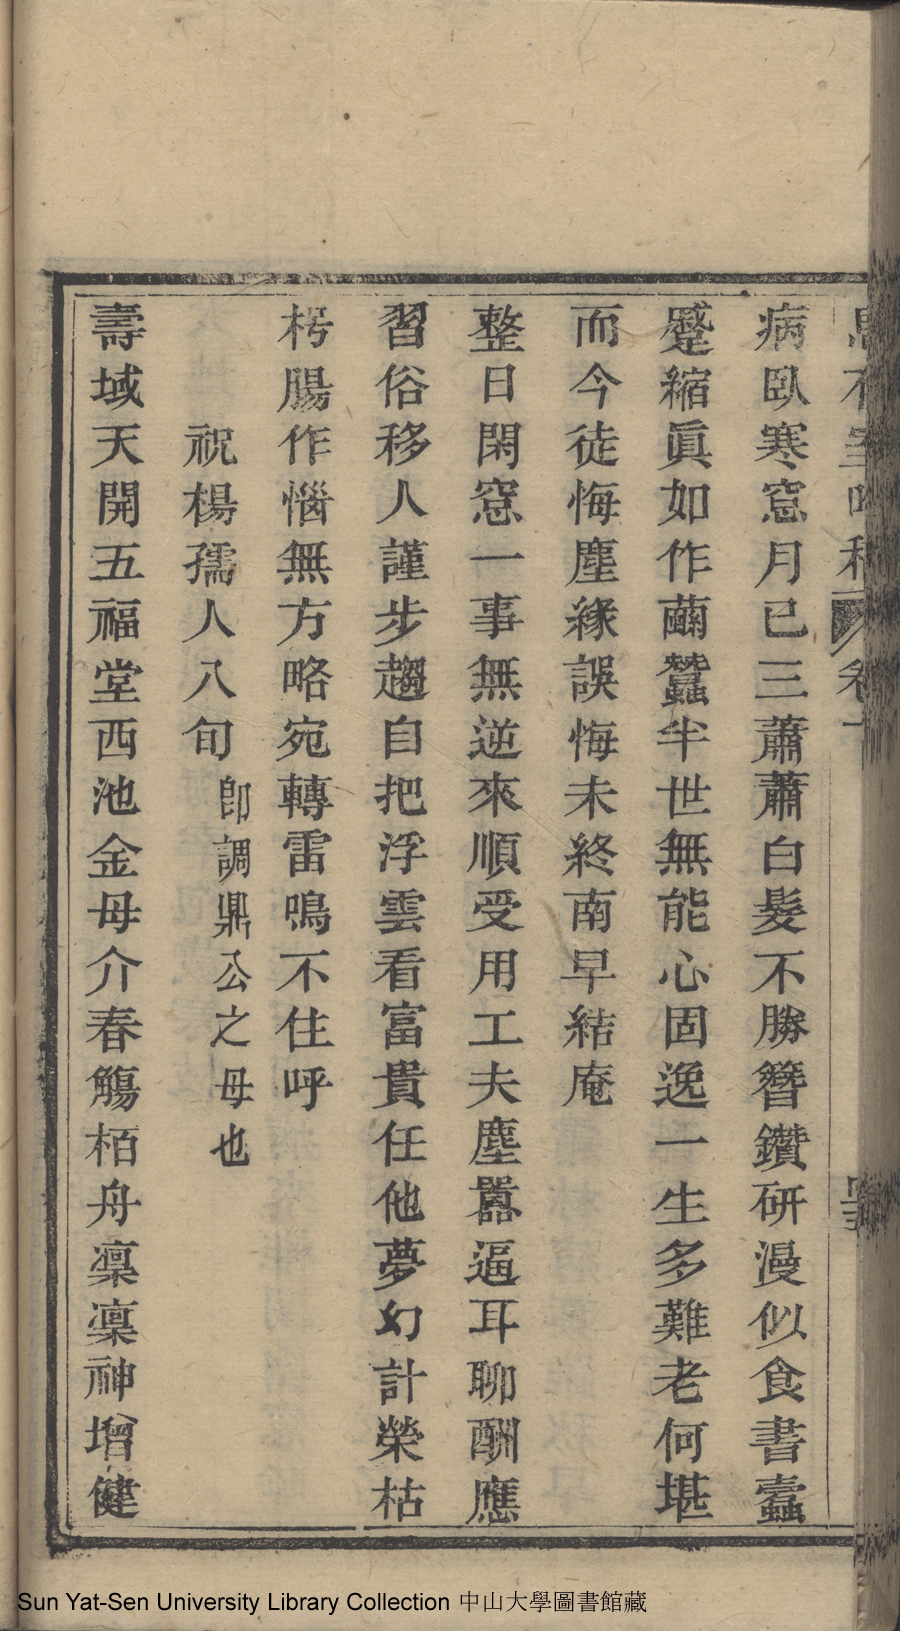 病臥寒窓月已三蕭蕭白髮不勝簪鑽研漫似食書蠹
蹙縮眞如作繭蠶半世無能心固逸一生多難老何堪
而今徒悔塵緣誤悔未終南早結庵
整日閑窓一事無逆來順受用工夫塵囂逼耳聊酬應
習俗移人謹步趨自把浮雲看富貴任他夢幻計榮枯
枵腸作惱無方略宛轉雷鳴不住呼
祝楊孺人八旬
卽調鼎公之母也
壽域天開五福堂西池金母介春觴栢舟凜凜神增健
Sun Yat-Sen University Library Collection 中山大學圖書館藏